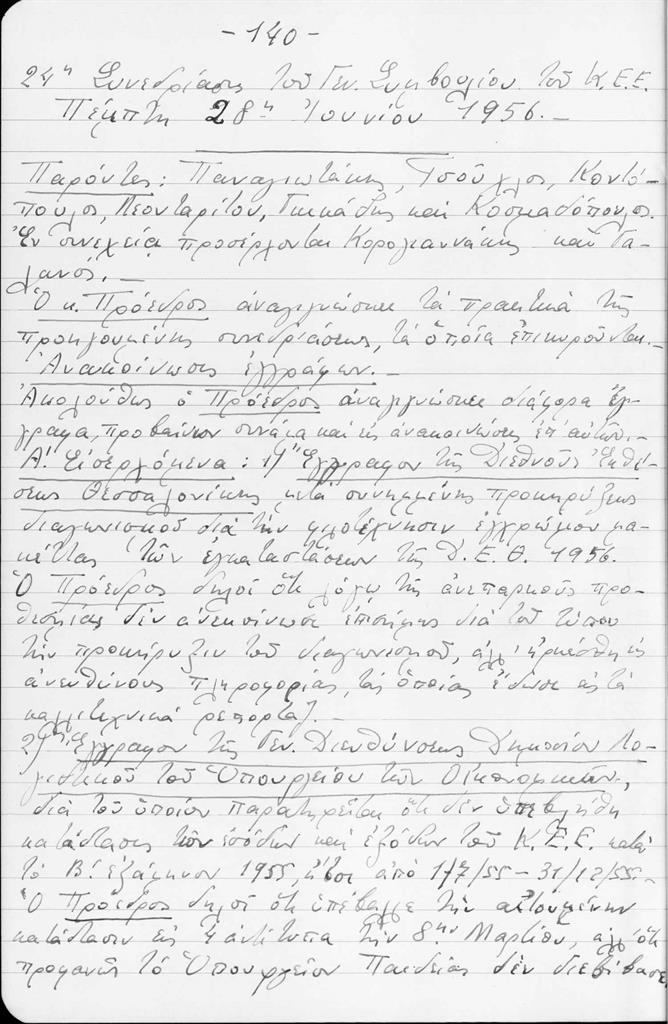 -140-
24η Συνεδρίασις τοῦ Γεν. Συμβουλίου τοῦ Κ.Ε.Ε.
Πέμπτη 28η Ἰουνίου 1956.-
Παρόντες: Παναγιωτάκης, Τσοῦχλος, Κοντό-
πουλος, Λεονταρίτου, Γικκάδης καί Κοσμαδόπουλος.
Ἐν συνεχείᾳ προσέρχονται Κορογιαννάκης καί Γα-
λανός.-
Ὁ κ. Πρόεδρος ἀναγιγνώσκει τά πρακτικά τῆς
προηγουμένης συνεδριάσεως, τά ὁποῖα ἐπικυροῦνται.-
Ἀνακοίνωσις ἐγγράφων.-
Ἀκολούθως ὁ Πρόεδρος ἀναγιγνώσκει διάφορα ἔγ-
γραφα, προβαίνων συνάμα καί εἰς ἀνακοινώσεις ἐπ' αὐτῶν.-
Α! Εἰσερχόμενα: 1) Ἔγγραφον τῆς Διεθνοῦς Ἐκθέ-
σεως Θεσσαλονίκης μετά συνημμένης προκηρύξεως
διαγωνισμοῦ διά τήν φιλοτέχνησιν ἐγχρώμου μα-
κέττας τῶν ἐγκαταστάσεων τῆς Δ.Ε.Θ. 1956.
Ὁ Πρόεδρος δηλοῖ ὅτι λόγῳ τῆς ἀνεπαρκοῦς προ-
θεσμίας δέν ἀνεκοίνωσε ἐπισήμως διά τοῦ τύπου
τήν προκήρυξιν τοῦ διαγωνισμοῦ, ἀλλ' ἠρκέσθη εἰς
ἀνευθύνους πληροφορίας, τάς ὁποίας ἔδωσε εἰς τά
καλλιτεχνικά ρεπορτάζ.-
2) Ἔγγραφον τῆς Γεν. Διευθύνσεως Δημοσίου Λο-
γιστικοῦ τοῦ Ὑπουργείου τῶν Οἰκονομικῶν,
διά τοῦ ὁποίου παρατηρεῖται ὅτι δέν ὑπεβλήθη
κατάστασις τῶν ἐσόδων καί ἐξόδων τοῦ Κ.Ε.Ε. κατά
τό Β! ἑξάμηνον 1955, ἤτοι ἀπό 1/7/55 - 31/12/55.-
Ὁ Πρόεδρος δηλοῖ ὅτι ὑπέβαλλε τήν αἰτουμένην
κατάστασιν εἰς 4 ἀντίτυπα τήν 8ην Μαρτίου, ἀλλ' ὅτι
προφανῶς τό Ὑπουργεῖον Παιδείας δέν διεβίβασε,